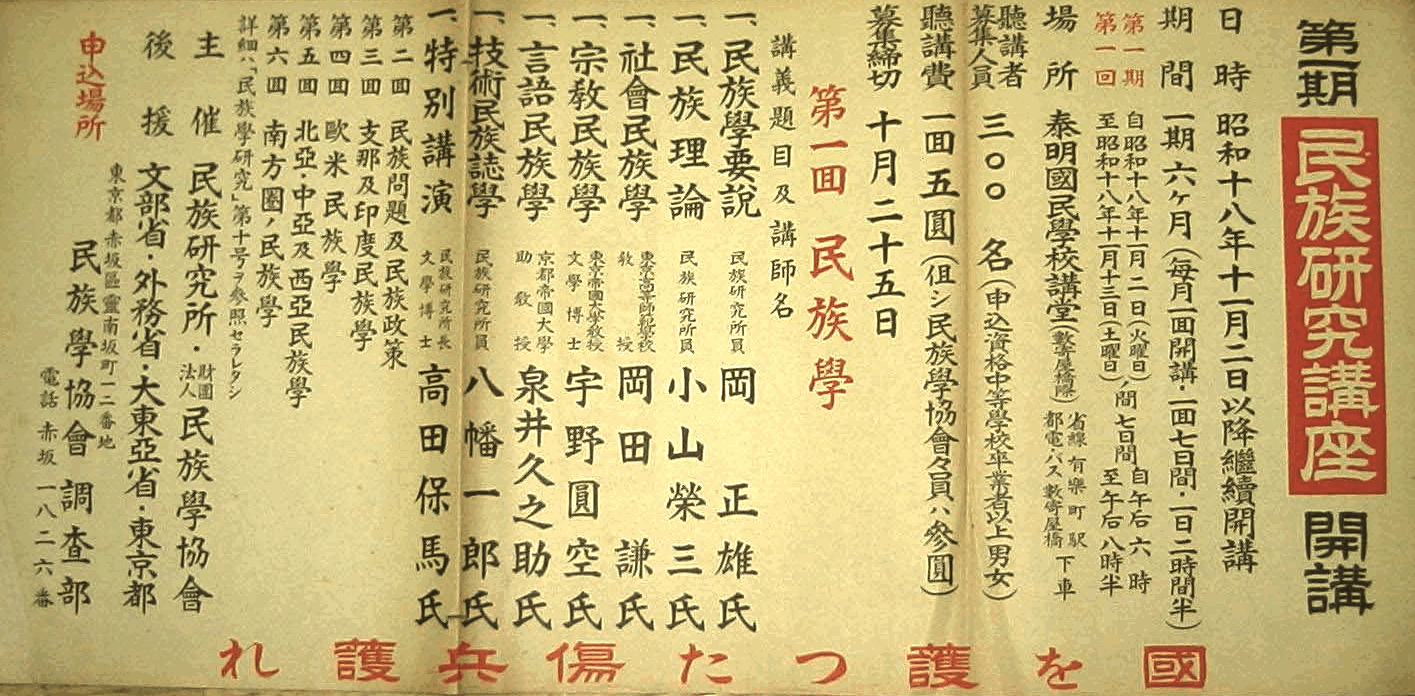 第一期 民族研究講座 開講
日時 昭和十八年十一月二日以降繼續開講
期間 一期六ヶ月(每月一回開講・一回七日間・一日二時間半)
第一期 自昭和十八年十一月二日(火曜日)
第一回 至昭和十八年十一月十三日(土曜日)
ノ間 七日間
自午后六時
至午后八時半
場所 泰明國民學校講堂(數寄屋橋際)
省線 有樂町駅
都電・バス 數寄屋橋
下車
聽講者
募集人員 三〇〇名(申込資格中等學校卒業者以上男女)
聽講費 一回五圓(但シ民族學協會々員ハ參圓)
募集締切 十月二十五日
第一回 民族學
講義題目及講師名
一、民族學要說 民族研究所員 岡正雄氏
一、民族理論 民族研究所員 小山榮三氏
一、社會民族學 東京高等師範學校教授 岡田謙氏
一、宗敎民族學 東京帝國大學敎授 文學博士 宇野圓空氏
一、言語民族學 京都帝國大學助敎授 泉井久之助氏
一、技術民族誌學 民族研究所員 八幡一郎氏
一、特別講演 民族研究所長 文學博士 高田保馬氏
第二回 民族問題及民族政策
第三回 支那及印度民族學
第四回 歐米民族學
第五回 北亞・中亞及西亞民族學
第六回 南方圏ノ民族學
詳細ハ、「民族學研究」第十号ヲ參照セラレタシ
主催 民族研究所・財團法人民族學協會
後援 文部省・外務省・大東亞省・東京都
申込場所 東京都赤坂區靈南坂町一二番地
民族學協會調査部
電話 赤坂 一八二六番
國を護つた傷兵護れ